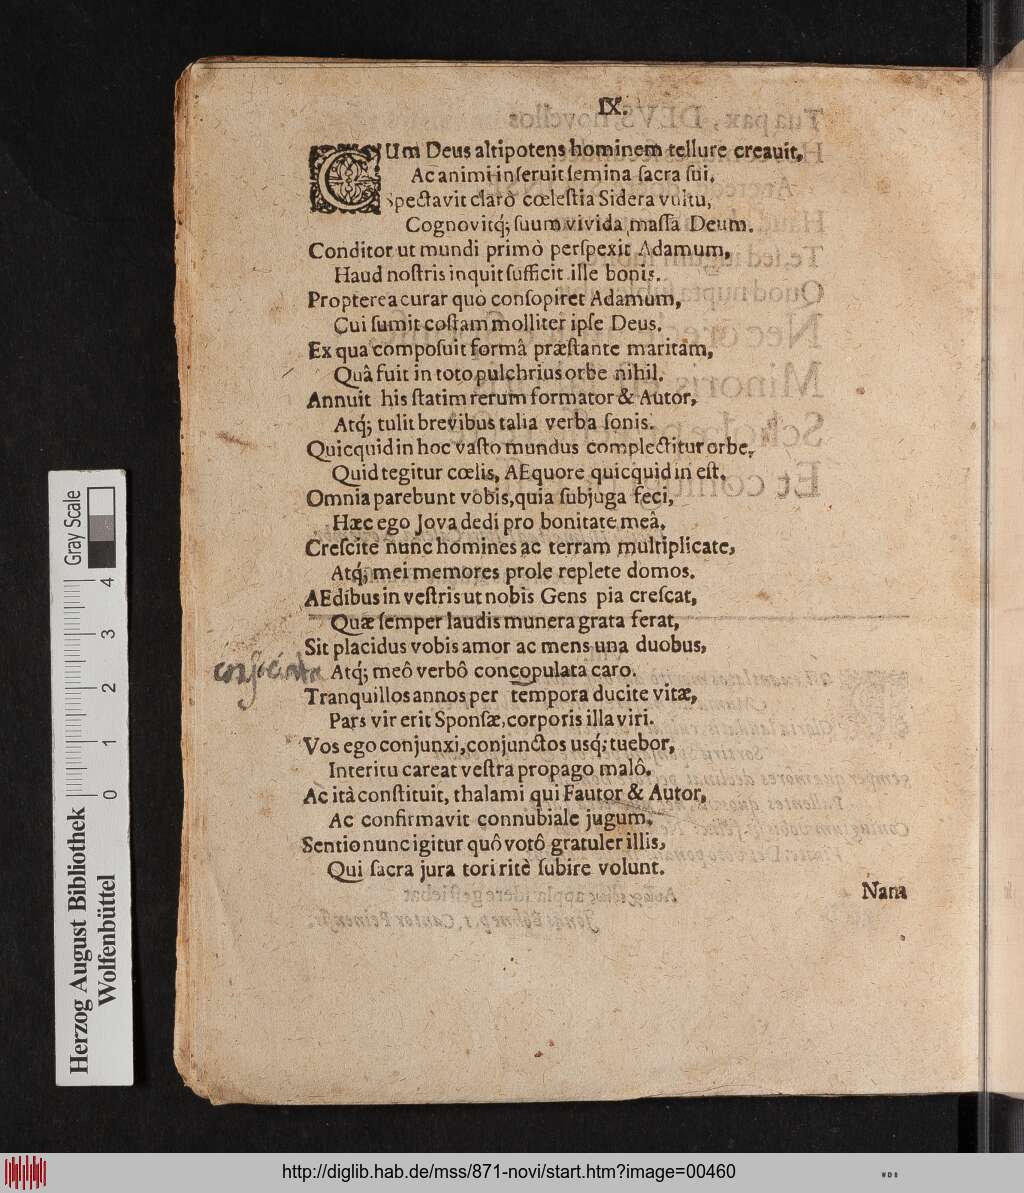 IX.
CUm Deus altipotens hominem tellure creauit,
Ac animi inſeruit ſemina ſacra ſui.
Spectavit clarò cœleſtia Sidera vultu,
Cognovitq́; ſuum vivida maſſa Deum.
Conditor ut mundi primò perſpexit Adamum,
Haud noſtris inquit ſufficit ille bonis.
Propterea curar quò conſopiret Adamum,
Cui ſumit coſtam molliter ipſe Deus.
Ex qua compoſuit formâ præſtante maritam,
Quâ fuit in toto pulchrius orbe nihil.
Annuit his ſtatim rerum formator & Autor,
Atq́; tulit brevibus talia verba ſonis.
Quicquid in hoc vaſto mundus complectitur orbe,
Quid tegitur cœlis, AEquore quicquid in eſt.
Omnia parebunt vobis, quia ſubjuga feci,
Hæc ego Jova dedi pro bonitate meâ.
Creſcite nunc homines ac terram multiplicate,
Atq́; mei memores prole replete domos.
AEdibus in veſtris ut nobis Gens pia creſcat,
Quæ ſemper laudis munera grata ferat,
Sit placidus vobis amor ac mens una duobus,
Atq́; meô verbô concopulata caro.
Tranquillos annos per tempora ducite vitæ,
Pars vir erit Sponſæ, corporis illa viri.
Vos ego conjunxi, conjunctos usq́; tuebor,
Interitu careat veſtra propago malô.
Ac ità conſtituit, thalami qui Fautor & Autor,
Ac confirmavit connubiale jugum.
Sentio nunc igitur quô votô gratuler illis,
Qui ſacra jura tori ritè ſubire volunt.
Nam
Gray Scale
4
3
2
1
0
Herzog August Bibliothek
Wolfenbüttel
http://diglib.hab.de/mss/871-novi/start.htm?image=00460